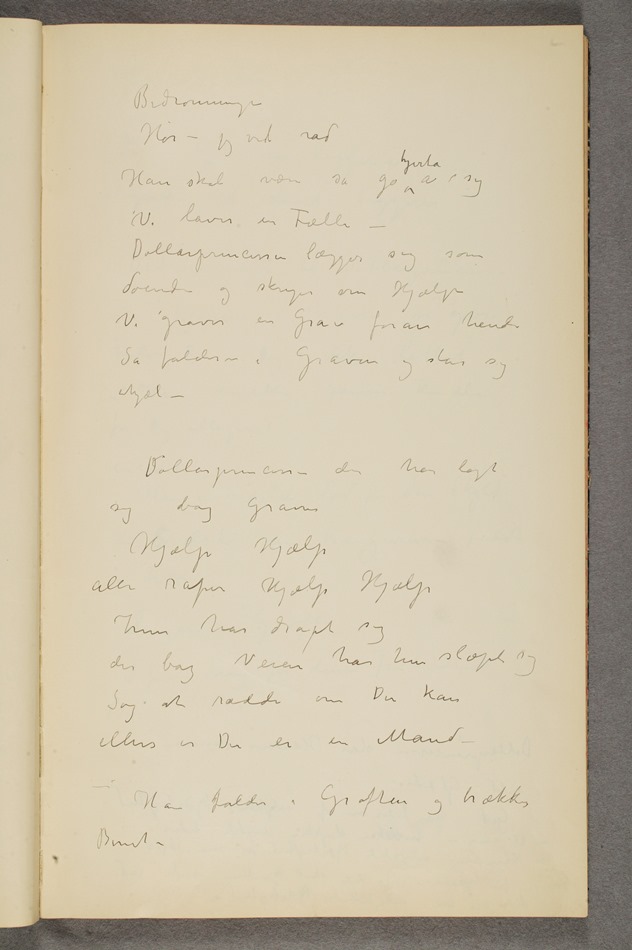 Bedronningen
Hør – jeg ved rad
Han skal være sa go hjerta a sig
Vi laver en Fælle –
Dollarprincessen lægger sig som
døende og skriger om Hjælp
Vi graver en Grav foran hende
Sa falder i Graven og slar sig
ihjæl –
Dollarprincessen der har lagt
sig bag Graven
Hjælp Hjælp
alle raper Hjælp Hjælp
Hun har dræpt sig
der bag Veien har hun slæpt sig
Søg at rædde om Du kan
ellers er Du ei en Mand –
Han falder i Grøften og brækker
Benet –